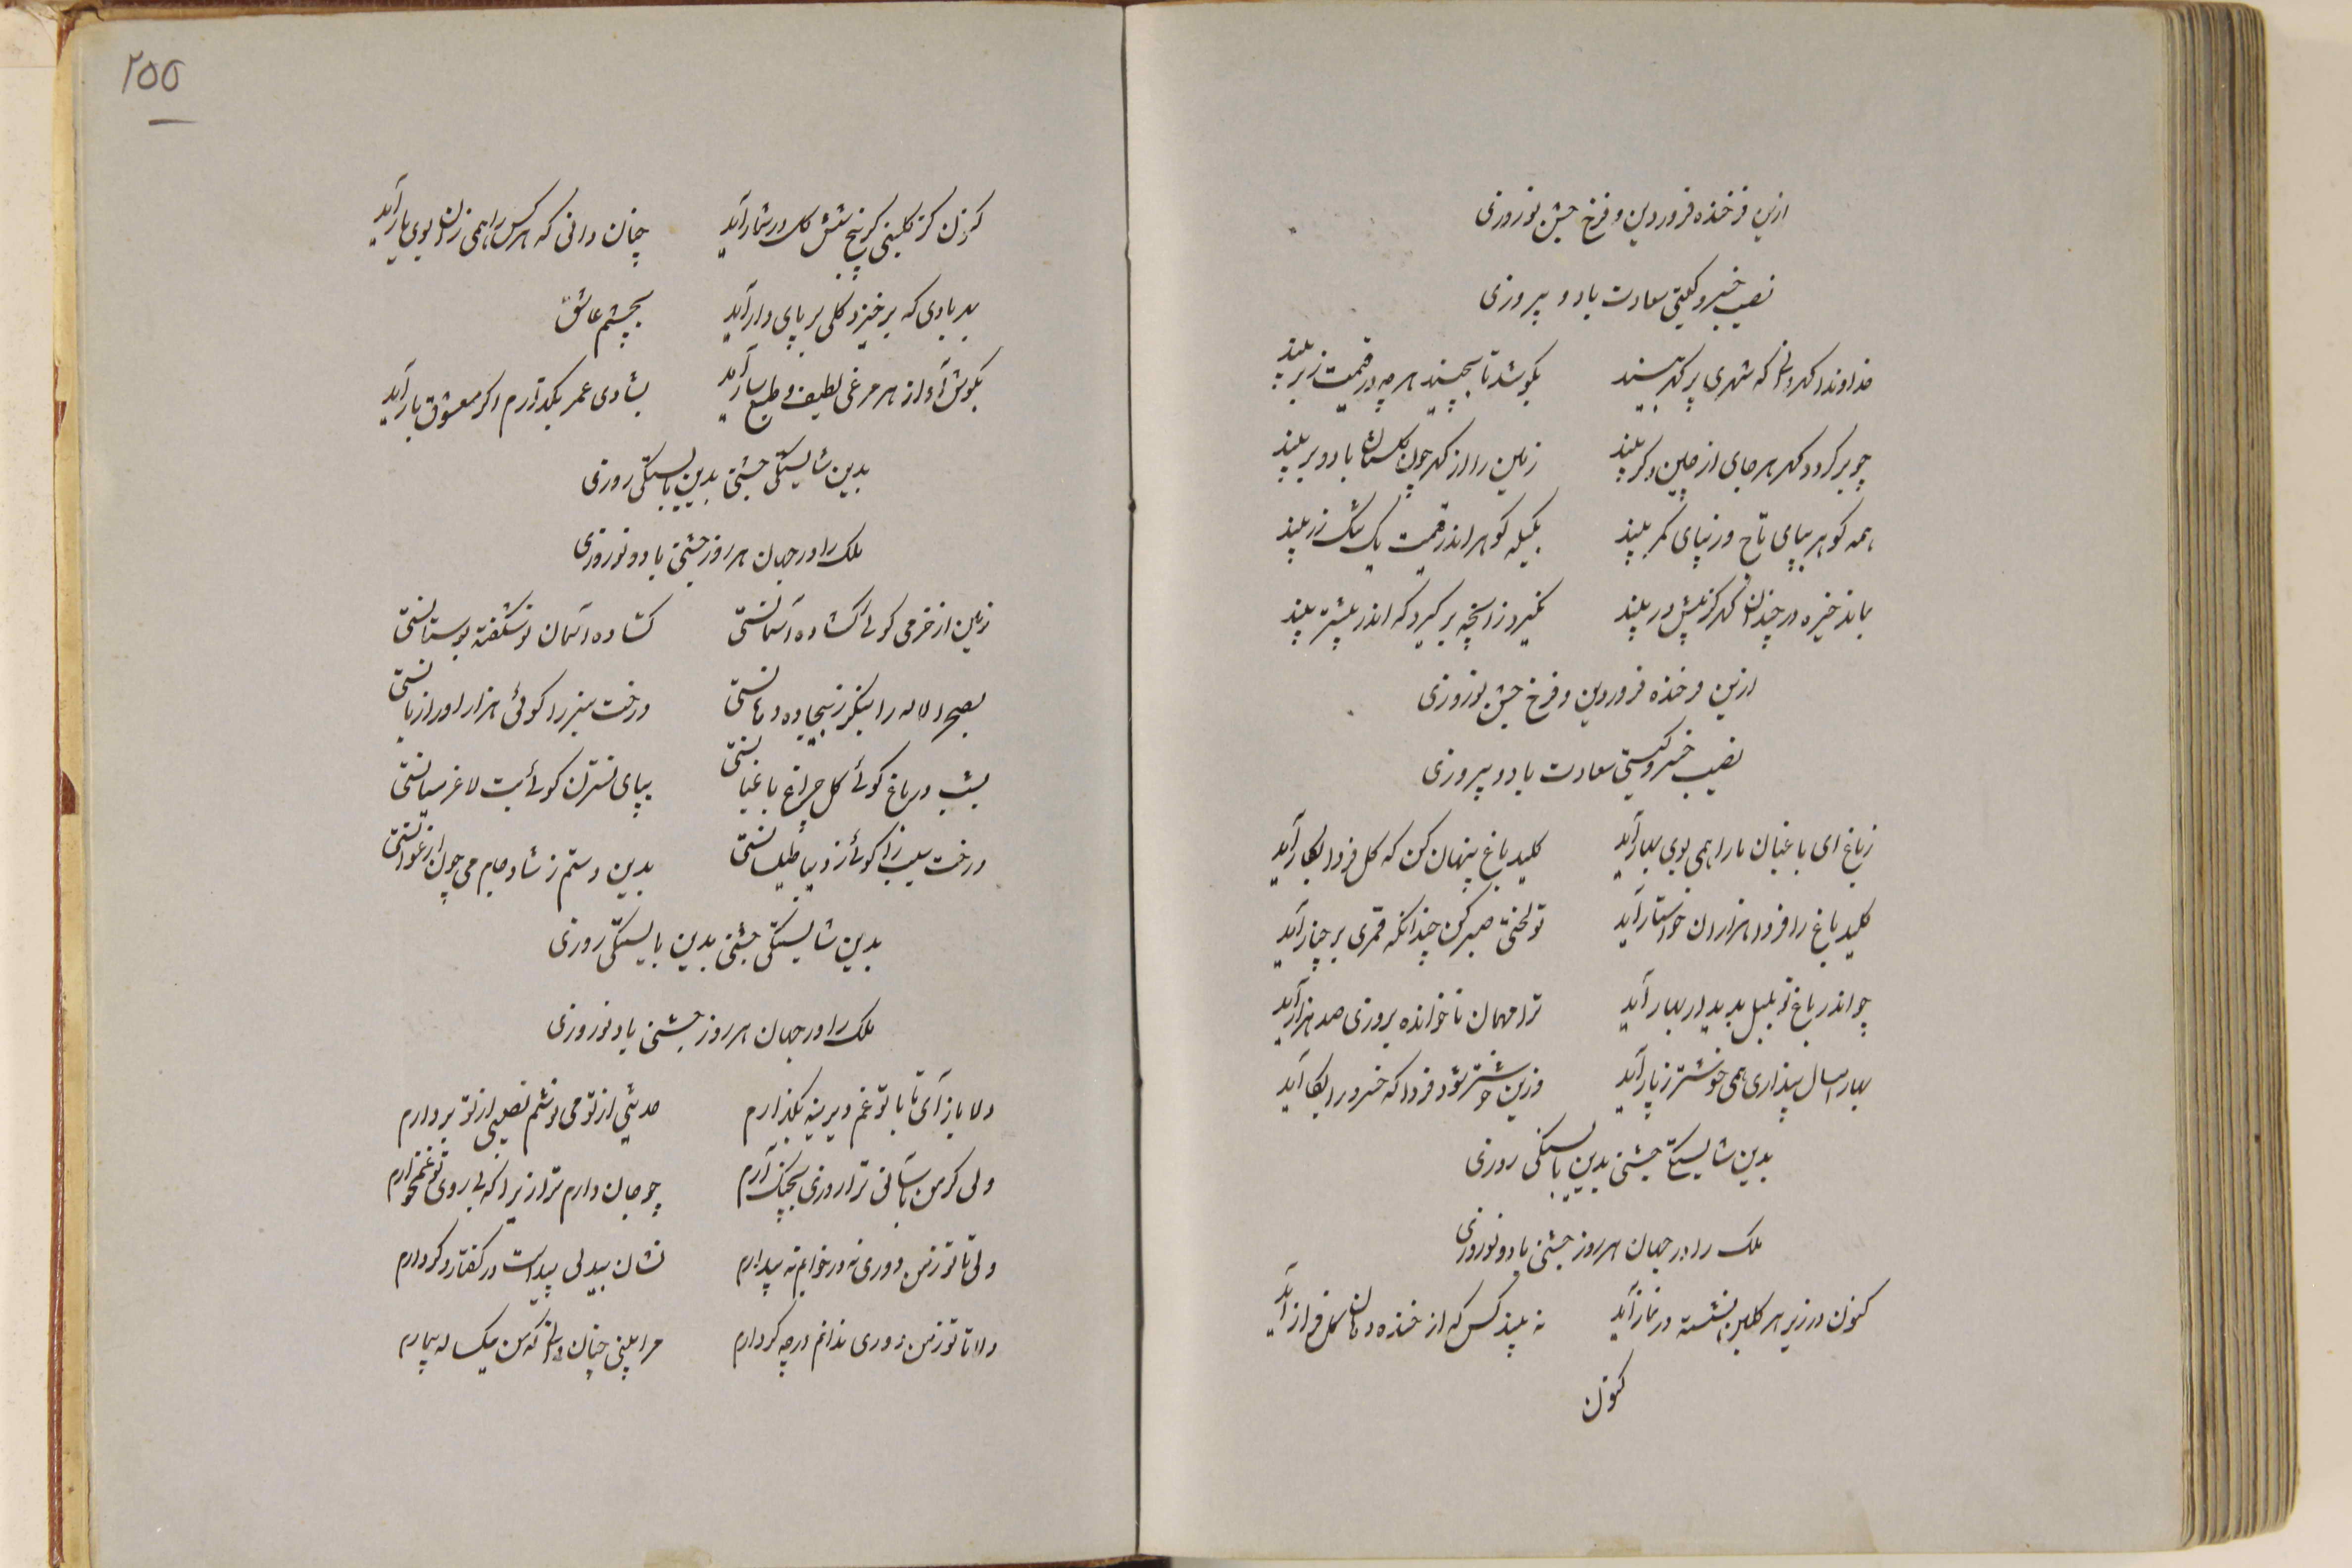 ازین فرخنده فروردین و فرخ جشن نوروزی
نصیب خسرو گیتی سعادت باد و پیروزی
خداوندا گهر داند که شهری پر گهر بیند بکوشد تا بچیند هرچه در قیمت زبر بیند
چو برگردد گهر هر جای ازین دگر بیند زمین را از گهر چون گلستان بادو بر بیند
همه گوهر بپای تاج وز بپای کمر بیند بکیله گوهر اندر قیمت یک تنگ زر بیند
بماند خیره در چندان گهر کز پیش در بیند نگیرد زانچه برگیرد که اندر پیشتر بیند
ازین فرخنده فروردین و فرخ جشن نوروزی
نصیب خسرو گیتی سعادت باد و پیروزی
زباغ ای باغبان ما را همی بوی بهار آید کلید باغ پنهان کن که گل فردا بکار آید
کلید باغ را فردا هزاران خواستار آید تو لختی صبر کن چندانکه قمری بر چنار آید
چو اندر باغ تو بلبل بدیدار بهار آید ترا مهمان ناخوانده بروزی صد هزار آید
بهار امسال پنداری همی خوشتر ز پار آید وزین خوشتر شود فردا که خسرو را بکار آید
بدین شایستگی جشنی بدین بایستگی روزی
ملک را در جهان هر روز جشنی باد و نوروزی
کنون در زیر هر گلبن نشسته در نماز آید نه بیند کس که از خنده دهان گل فراز آید
کنون
۲۵۵
کنون کز گلبنی کز پنج شش گل در شمار آید چنان دانی که هر کس را همی زان بوی یار آید
بهر بادی که برخیزد گلی بر پای دار آید بچشم عاشق
بگوش آواز هر مرغی لطیف و طبع ساز آید بشادی عمر بگذارم اگر معشوق باز آید
بدین شایستگی جشنی بدین بایستگی روزی
ملک را در جهان هر روز جشنی باد و نوروزی
زمین از خرمی گوئی گشاده آسمانستی گشاده آسمان نو شکفته بوستانستی
بصحرا لاله را بنگر ز بیجاده دهانستی درخت سبز را گوئی هزار آوا زبانستی
بشب در باغ گوئی گل چراغ باغبانستی بپای نسترن گوئی بت لاغر میانستی
درخت سیب را گوئی ز دیبا طیلسانستی بدین دستم ز شاد جام می چون ارغوانستی
بدین شایستگی جشنی بدین بایستگی روزی
ملک را در جهان هر روز جشنی باد نوروزی
دلا باز آی تا با تو غم دیرینه بگذارم حدیثی از تو می نوشم نصیبی از تو بردارم
دلی گر من بآسانی ترا روزی بچنگ آرم چو جان دارم ترا زیرا که بی روی تو غمخوارم
دلی تا تو ز من دوری نه در خوابم نه بیدارم نشان بیدلی پیداست در گفتار و کردارم
دلا تا تو ز من دوری ندانم در چه کردارم مرا بینی چنان دانی که من یک ساله بیمارم